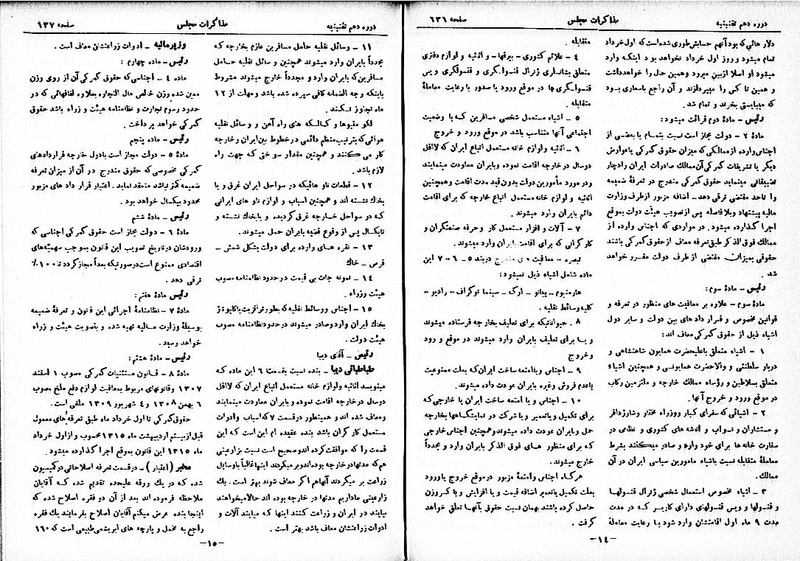 دوره دهم تقنینیه
مذاکرات مجلس
صفحه ۱۳۶
دلار هائی که بود آنهم حسابش طوری شده است که اول خرداد
تمام میشود و روز اول خرداد نخواهد بود اینکه وارد
میشود او اصلا از بین میرود و همین حال را خواهد داشت
و همین تا کی را میپردازند و آن راجع باسعاری بود
که میبایستی بخرند و تمام شد.
رئیس - مادهٔ دوم قرائت میشود:
مادهٔ ۲ - دولت مجاز است نسبت بتمام یا بعضی از
اجناس وارده از ممالکی که میزان حقوق گمرکی یا عوارض
دیگر یا تشریفات گمرکی آن ممالك صادرات ایران را دچار
تضییقاتی مینماید حقوق گمرکی مندرج در تعرفهٔ ضمیمه
را تاحد مقتضی ترقی دهد - اضافه مزبور از طرف وزارت
مالیه پیشنهاد و بلافاصله پس از تصویب هیئت دولت بموقع
اجرا گذارده میشود. در مواردی که اجناس وارده از
ممالك فوق الذکر طبق تعرفه معاف از حقوق گمرکی باشند
حقوقی بمیزان مقتضی از طرف دولت مقرر خواهد
شد
رئیس - مادهٔ سوم:
مادهٔ سوم - علاوه بر معافیت های منظور در تعرفه و
قوانین مخصوص و قرارداد های بین دولت و سایر دول
اشیاء ذیل از حقوق گمرکی معاف اند:
۱ - اشیاء متعلق باعلیحضرت همایون شاهنشاهی و
دربار سلطنتی و والاحضرت همایونی و همچنین اشیاء
متعلق بسلاطین و رؤساء ممالک خارجه و ملتزمین رکاب
در موقع ورود و خروج آنها.
۲ - اشیائی که سفرای کبار و وزراء مختار و شارژدافر
و مستشاران و نواب و اتشه های کشوری و نظامی در
سفارت خانه ها برای خود وارد و صادر میکنند بشرط
معاملهٔ متقابله نسبت باشیاء مأمورین سیاسی ایران در آن
ممالك.
۳ - اشیاء مخصوص استعمال شخصی ژنرال قنسولها
و قنسولها و ویس قنسولهای دارای کاریر که در مدت
مدت ۹ ماه اول اقامتشان وارد شود با رعایت معاملهٔ
متقابله.
۴ - علائم کشوری - بیرقها - و اثاثیه و لوازم دفتری
متعلق بشانسلری ژنرال قنسولگری و قنسولگری و ویس
قنسولگری ها در موقع ورود یا صدور با رعایت معاملهٔ
متقابله.
۵ - اشیاء مستعمل شخصی مسافرین که با وضعیت
اجتماعی آنها متناسب باشد در موقع ورود و خروج
۶ - اثاثیه و لوازم خانه مستعمل اتباع ایران که لااقل
دو سال در خارجه اقامت نموده و بایران معاودت مینمایند
و در مورد مأمورین دولت بدون قید مدت اقامت و همچنین
اثاثیه و لوازم خانه مستعمل اتباع خارجه که برای اقامت
دائم بایران وارد میشوند.
۷ - آلات و افزار مستعمل کار و حرفه صنعتگران و
کارگرانی که برای اقامت بایران وارد میشوند.
تبصره - معافیت های مندرج در بند ۵ - ۶ - ۷ این
ماده شامل اشیاء ذیل نمیشود:
هارمنیوم - پیانو - ارک - سینما توگراف - رادیو -
کلیه وسائط نقلیه.
۸ - حیواناتیکه برای تعلیف بخارجه فرستاده میشوند
و یا برای تعلیف بایران وارد میشوند در موقع و رود
و خروج
۹ - اجناس و یا امتعه ساخت ایران که بعلت ممنوعیت
یا عدم فروش وغیره بایران عودت داده میشوند.
۱۰ - اجناس و یا امتعه ساخت ایران یا خارجی که
برای تکمیل و یا تعمیر و یا شرکت در نمایشگاهها بخارجه
حمل و بایران عودت داده میشوند و همچنین اجناس خارجی
که برای منظور های فوق الذکر بایران وارد و مجدداً
خارج میشوند.
هرگاه اجناس و امتعهٔ مزبور در موقع خروج یا ورود
بعلت تکمیل یا تعمیر اضافه قیمت و یا افزایش و یا کم وزن
حاصل کرده باشند بهمان نسبت حقوق بآنها تعلق خواهد
گرفت.
-۱۴-
دوره دهم تقنینیه
مذاکرات مجلس
صفحه ۱۳۷
۱۱ - وسائل نقلیه حامل مسافرین عازم بخارجه که
مجدداً بایران وارد میشوند همچنین وسائل نقلیه حامل
مسافرین که بایران وارد و مجدداً خارج میشوند مشروط
باینکه وجه الضمانه کافی سپرده شده باشد و مهلت از ۱۲
ماه تجاوز نکند.
لکوموتیوها و کالسکه های راه آهن و وسائل نقلیه
هوائی که بترتیب منظم دائمی در خطوط بین ایران و خارجه
کار می کنند و همچنین مقدار سوختی که جهت راه
لازم باشد.
۱۲ - قطعات ناو هائیکه در سواحل ایران غرق و یا
بخاك نشسته اند و همچنین اسباب و لوازم ناو های ایرانی
که در سواحل خارجه غرق گردیده و یا بخاك نشسته و
تا یکسال پس از وقوع قضیه بایران حمل میشوند.
۱۳ - نقره های وارده برای دولت بشکل شمش -
قرص - خاك
۱۴ - نمونه جات بی قیمت در حدود نظامنامه مصوب
هیئت وزراء.
۱۵ - اجناس و وسائط نقلیه که بطور ترانزیت با کابوتاژ
بخاك ایران وارد و صادر میشوند در حدود نظامنامه مصوب
هیئت دولت.
رئیس - آقای دیبا
طباطبائی دیبا - بنده نسبت بقسمت ۶ این ماده که
مینویسد اثاثیه و لوازم خانه مستعمل اتباع ایران که لااقل
دو سال در خارجه اقامت نموده و بایران معاودت مینمایند
و معاف شده اند و همینطور در قسمت ۷ که اسباب و ادوات
مستعمل کارگران باشد بنده عقیده ام این است که این
قسمت را که موافقت کرده اند و صحیح است نسبت بزارعینی
هم که مدتها در خارجه بوده اند و بر میگردند اینها غالباً با وسایل
زراعت بر میگردند آنها هم اگر معاف شوند بهتر است. یك
زارعینی ما داریم مدتها در خارجه بوده اند حالا میخواهند
بیایند در ایران و زراعت کنند اینها که میایند آلات و
ادوات زراعتشان معاف باشد بهتر است.
وزیر مالیه - ادوات زراعتشان معاف است.
رئیس - ماده چهارم:
ماده ۴ - اجناسی که حقوق گمرکی آن از روی وزن
معین شده وزن خالص مال التجاره بعلاوه لفافهائی که در
حدود رسوم تجارت و نظامنامه هیئت وزراء باشد حقوق
گمرکی خواهد پرداخت.
رئیس - ماده پنجم
مادهٔ ۵ - دولت مجاز است با دول خارجه قراردادهای
گمرکی مخصوصی که حقوق مندرج در آن از میزان تعرفه
ضمیمه کمتر باشد منعقد نماید. اعتبار قرار داد های مزبور
محدود بیکسال خواهد بود.
رئیس - مادهٔ ششم
مادهٔ ۶ - دولت مجاز است حقوق گمرکی اجناسی که
ورودشان در تاریخ تصویب این قانون بموجب سهمیه های
اقتصادی ممنوع است در صورتیکه بعداً مجاز گردد تا ۱۰۰٪
ترقی دهد.
رئیس - مادهٔ هفتم:
مادهٔ ۷ - نظامنامهٔ اجرائی این قانون و تعرفهٔ ضمیمه
بوسیلهٔ وزارت مالیه تهیه شده و بتصویب هیئت وزراء
خواهد رسید.
رئیس - مادهٔ هشتم:
مادهٔ ۸ - قانون مستثنیات گمرکی مصوب ۱ اسفند
۱۳۰۷ و قانونهای مربوط بمعافیت لوازم دفع ملخ مصوب
۶ بهمن ۱۳۰۸ و ۴ شهریور ۱۳۰۹ ملغی است.
حقوق گمرکی تا اول خرداد ماه طبق تعرفه های معمول
قبل از بیستم اردیبهشت ماه ۱۳۱۵ محسوب و از اول خرداد
ماه ۱۳۱۵ این قانون بموقع اجرا گذارده میشود.
مخبر (اعتبار) - در قسمت تعرفه اصلاحاتی در کمیسیون
شده که در یك ورقه علیحده تقدیم شده که آقایان
ملاحظه فرموده اند بعد از آن در فقره اصلاح شده که
اینجا بنده عرض میکنم آقایان اصلاح بفرمایند یك فقره
راجع به مخمل و پارچه های ابریشمی طبیعی است که ۱۶۰
-۱۵-